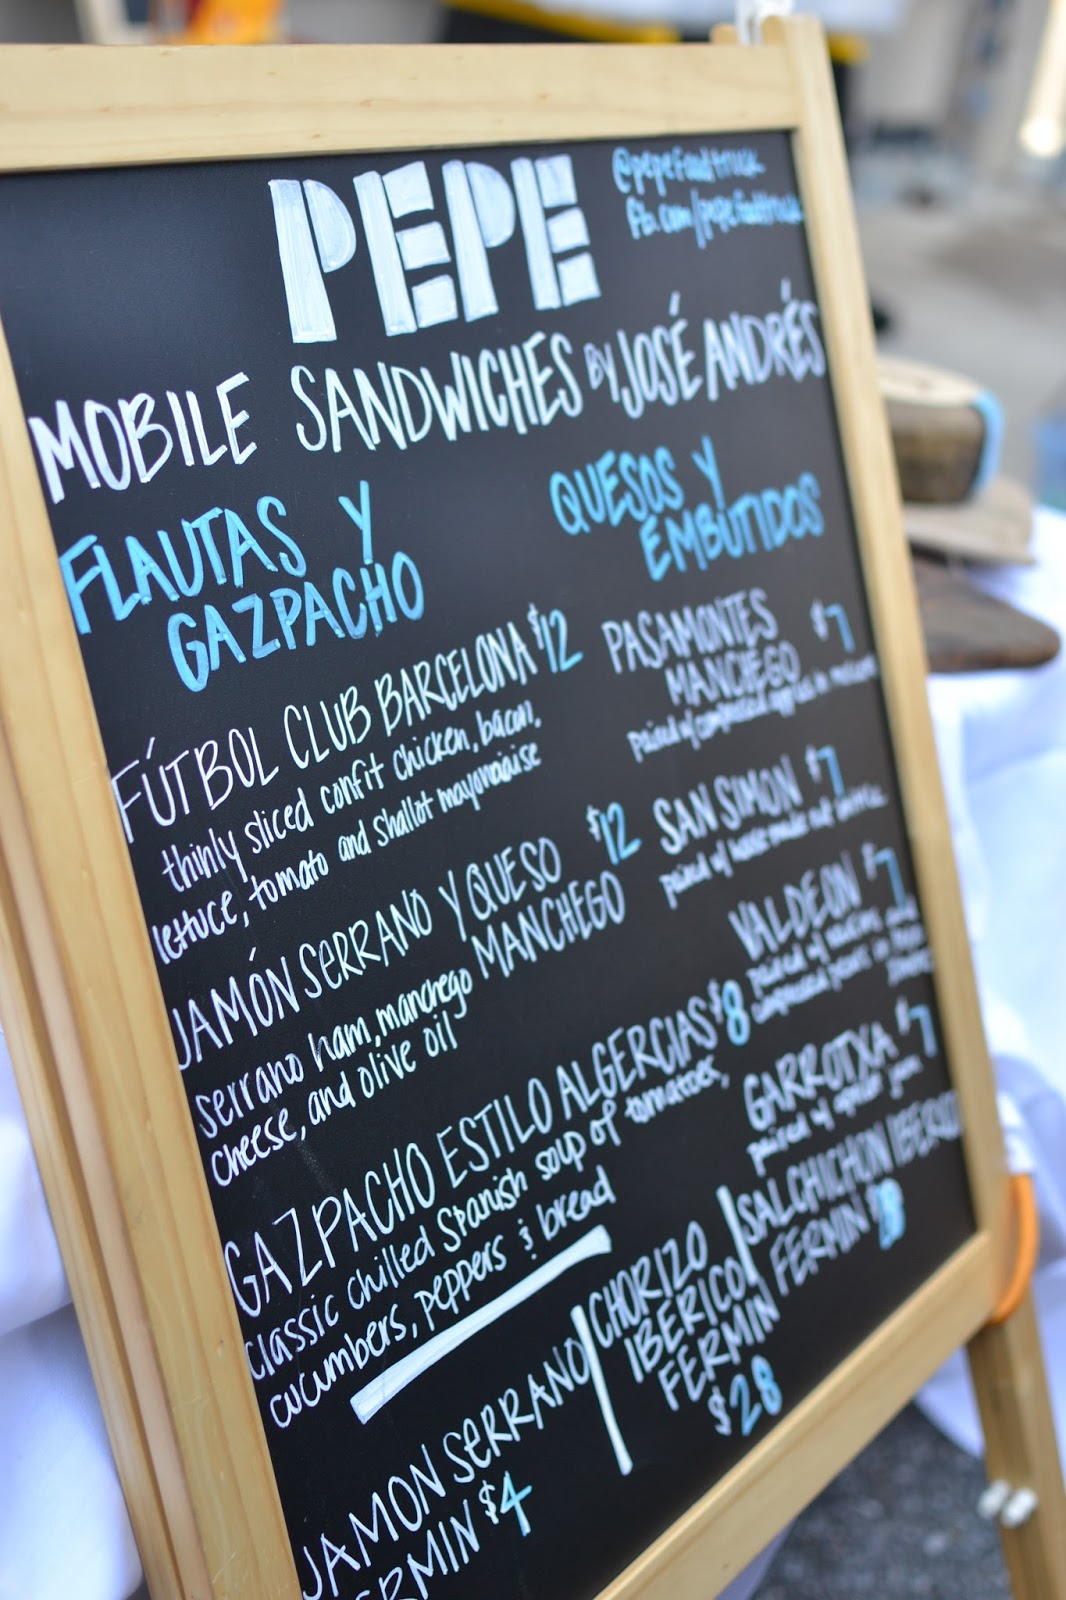 PEPE
@pepefoodtruck
fb.com/pepefoodtruck
MOBILE SANDWICHES BY JOSÉ ANDRÉS
FLAUTAS Y
GAZPACHO
FÚTBOL CLUB BARCELONA $12
thinly sliced confit chicken, bacon,
lettuce, tomato and shallot mayonaaise
JAMÓN SERRANO Y QUESO $12
MANCHEGO
serrano ham, manchego
cheese, and olive oil
GAZPACHO ESTILO ALGERCIAS $8
classic chilled Spanish soup of tomatoes,
cucumbers, peppers & bread
QUESOS Y
EMBUTIDOS
PASAMONTES $7
MANCHEGO
paired w/ compressed apples in
SAN SIMON $7
paired w/ house made
VALDEON $7
paired w/ and
compressed pears in
GARROTXA $7
paired w/
JAMON SERRANO
FERMIN $4
CHORIZO
IBERICO
FERMIN
$28
SALCHICHON IBERICO
FERMIN